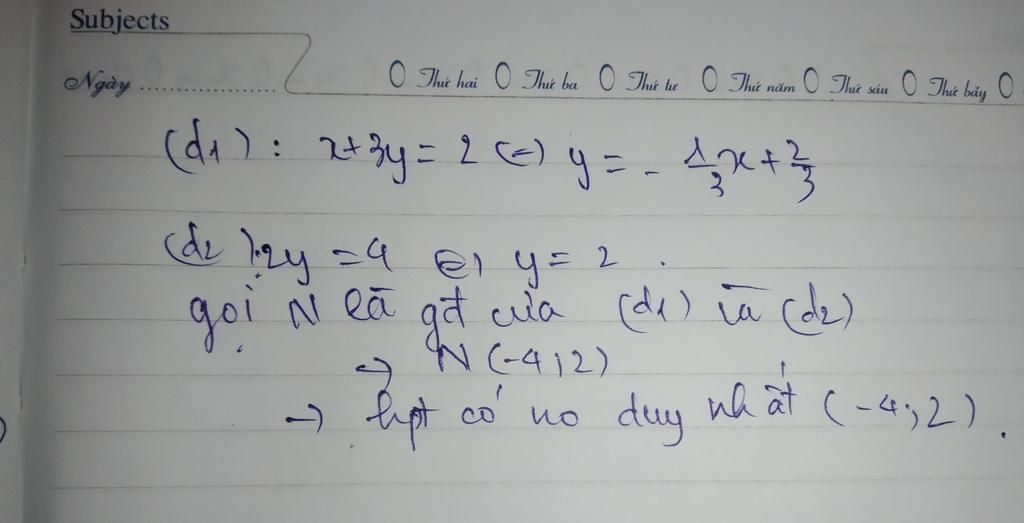 Subjects
Ngày ..................... Thứ hai Thứ ba Thứ tư Thứ năm Thứ sáu Thứ bảy
(d1) : x+3y = 2 (=) y = - 1/3 x + 2/3
(d2): 2y = 4 (=) y = 2 .
gọi N là gđ của (d1) và (d2)
→ N (-4;2)
→ hpt có no duy nhất (-4;2) .